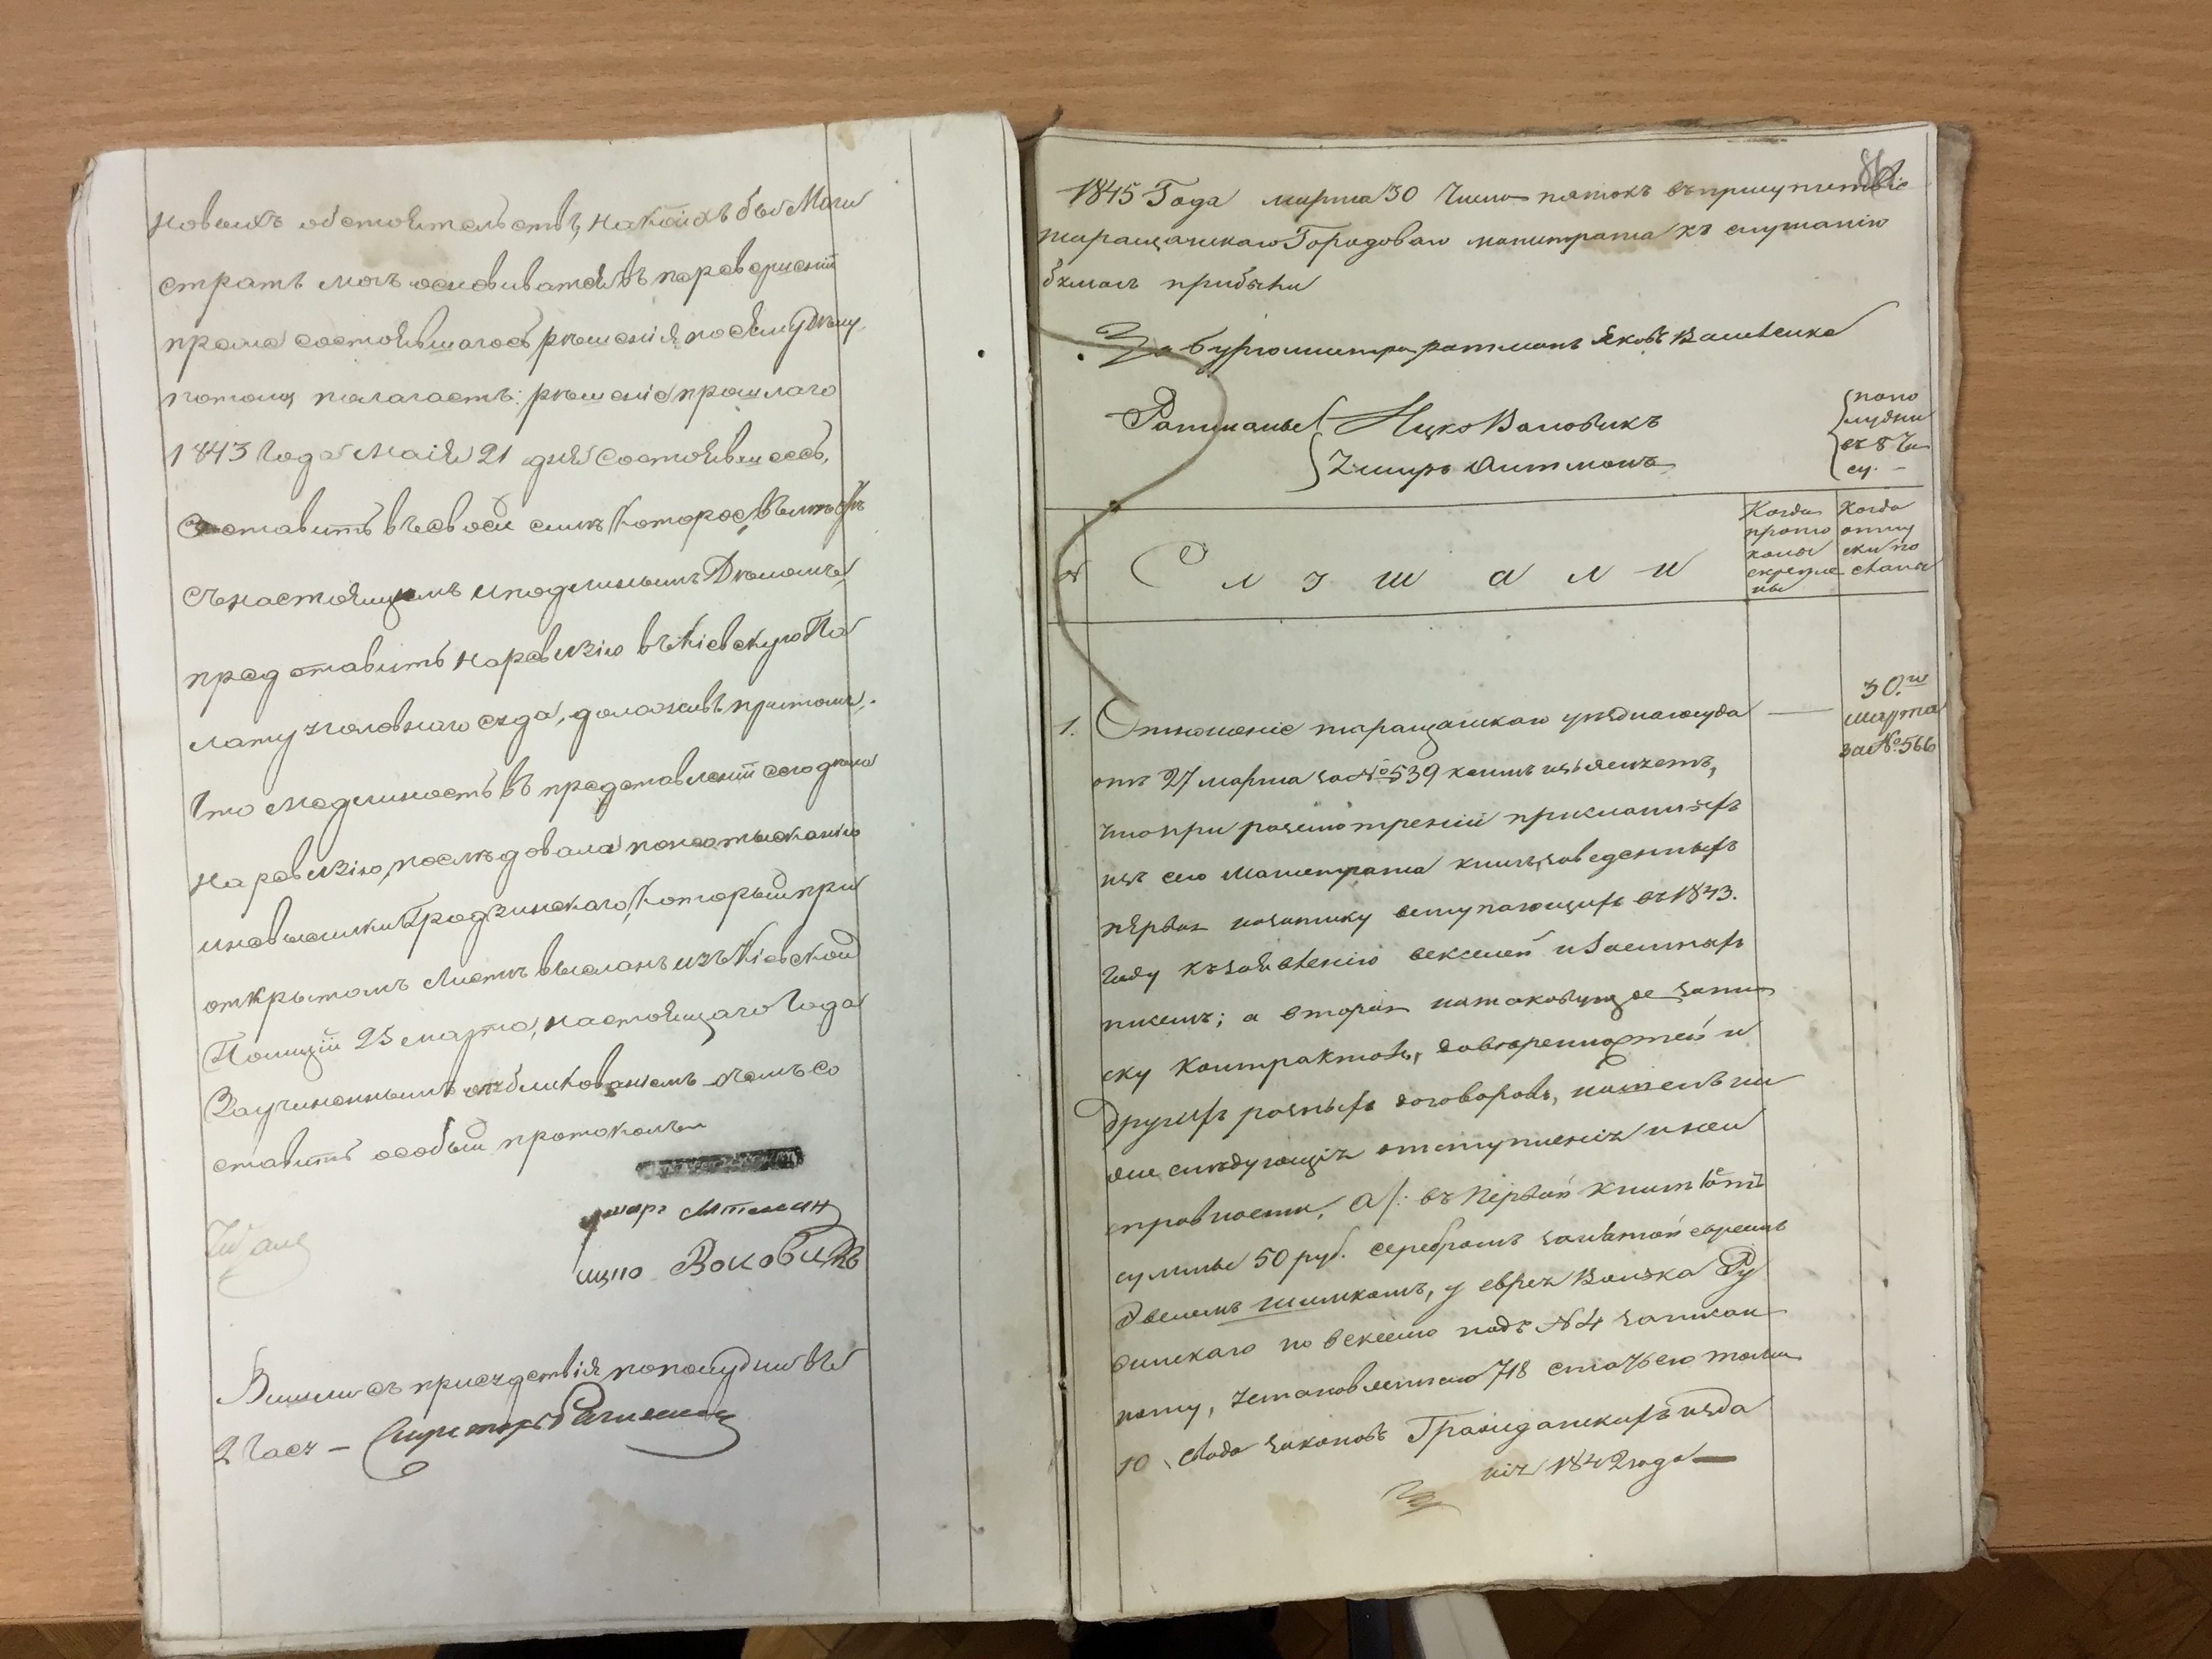 новыхъ обстоятельствъ, на коихъ бы Маги
стратъ могъ основыватся въ переворшеніи
прежде состоявшагося рѣшенія по сему дѣлу
потому полагаетъ: рѣшеніе прошлаго
1843 года Маія 21 дня состоявшеесь,
оставить въ своей силѣ, которое, вмѣстѣ
съ настоящимъ и подлиннымъ дѣломъ
представить на ревизію въ Кіевскую Па
лату уголовнаго суда, доложивъ притомъ,
что медленность въ представленіи сего дѣла
на ревизію, послѣдовала по неотысканію
иновѣ Градзинскаго, который при
открытомъ листѣ высланъ изъ Кіевской
Полиціи 23 марта, настоящаго года
За учиненнымъ опубликованіемъ о чемъ со
ставить особый протоколъ
Вышли съ присудствія по полудни въ
2 часу —
1845 Года марта 30 Число пятокъ въ присутствіе
таращанскаго Городоваго магистрата къ слушанію
бумагъ прибыли
За бургомистра ратманъ Яковъ
Ратманы
Ицко Воловикъ
по по
лудни
въ 8 ча
су. –
№
Слушали
Когда
прото
колы
скрепле
ны
Когда
отпу
ски по
сланы
1. Отношеніе таращанскаго уѣзднаго суда
30.го
марта
за № 566
отъ 27 марта за № 539 коимъ изъясняетъ,
что при розсмотреніи присланныхъ
изъ сего Магистрата книгъ, заведенныхъ
первая на записку вступающихъ въ 1843.
году къ засвѣтенію векселей и заемныхъ
писемъ; а вторая на таковую же запи
ску контрактовъ, доверенностей и
другихъ розныхъ договоровъ, нашелъ ни
же слѣдующія отступленія и неи
справности, а): въ первой книгѣ отъ
суммы 50 руб. серебромъ занятой евреемъ
у еврея Волька Ру
бинскаго по векселю подъ № 4 записан
ному, установленнаго 718 статьею тома
10 свода законовъ Гражданскихъ изда
нія 1842 года —